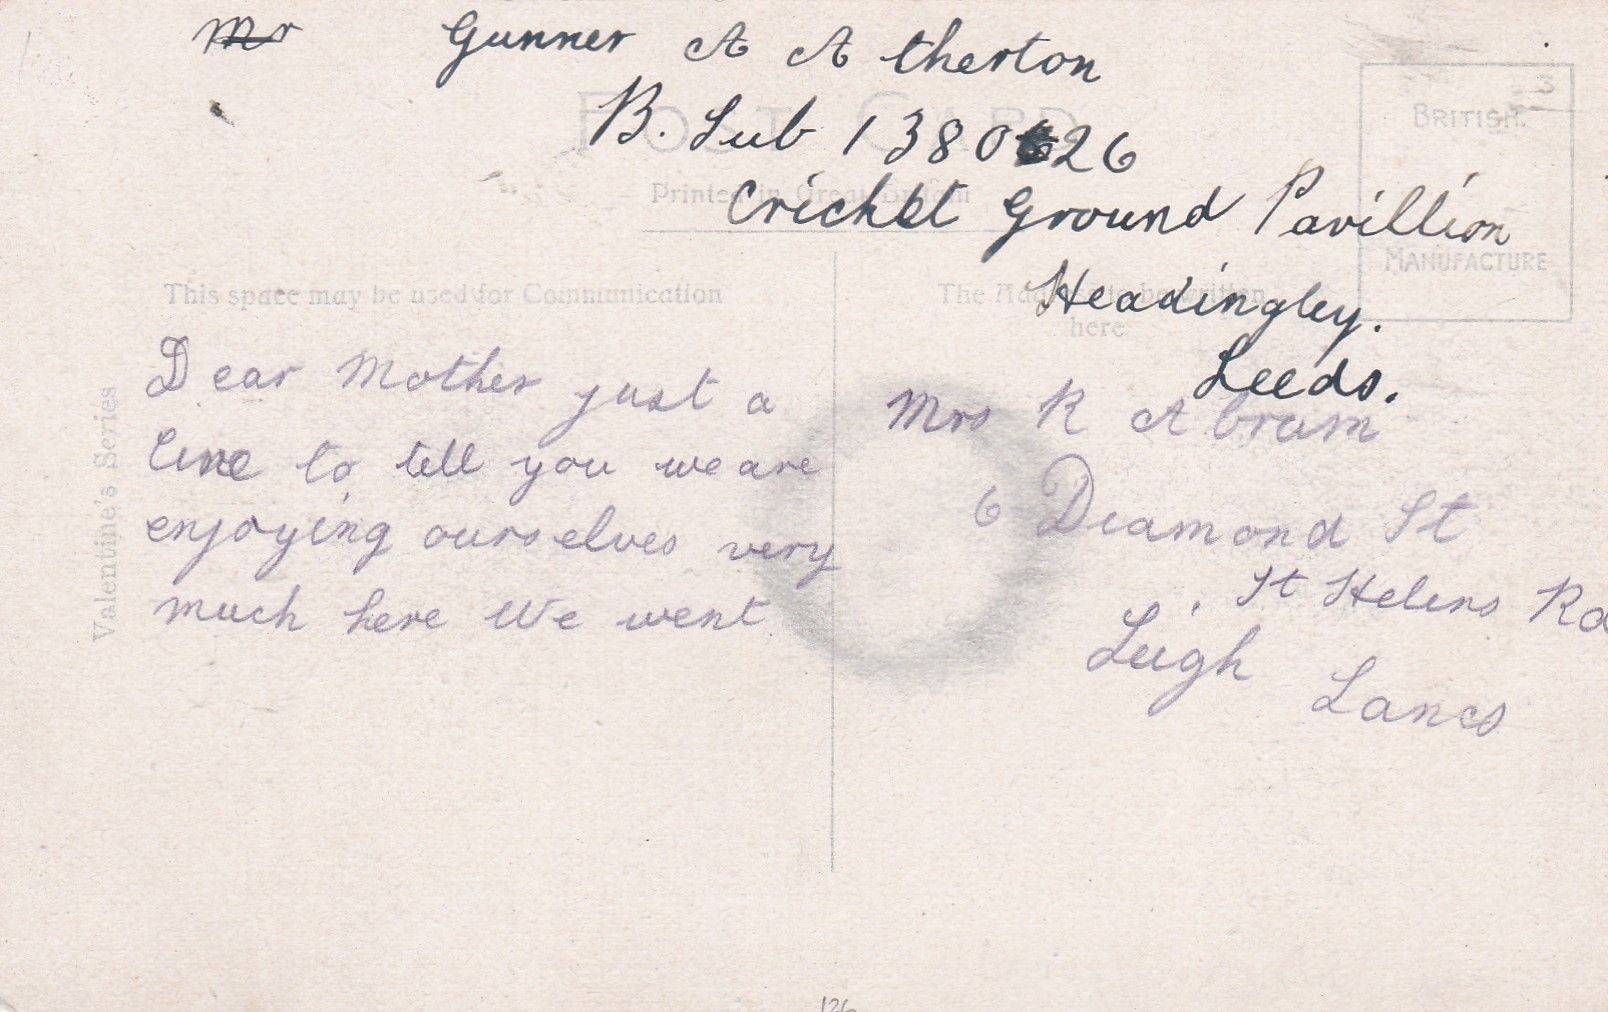 Mr Gunner A Atherton
B. Sub 1380626
Crickt Ground Pavillion
Headingley.
Leeds.
POST CARD
Printed in Great Britain
BRITISH
MANUFACTURE
This space may be used for Communication
The Address to be written
here
Valentine's Series
Dear Mother just a
line to tell you we are
enjoying ourselves very
much here We went
Mrs R Abram
6 Diamond St
St Helens Rd
Leigh Lancs
126